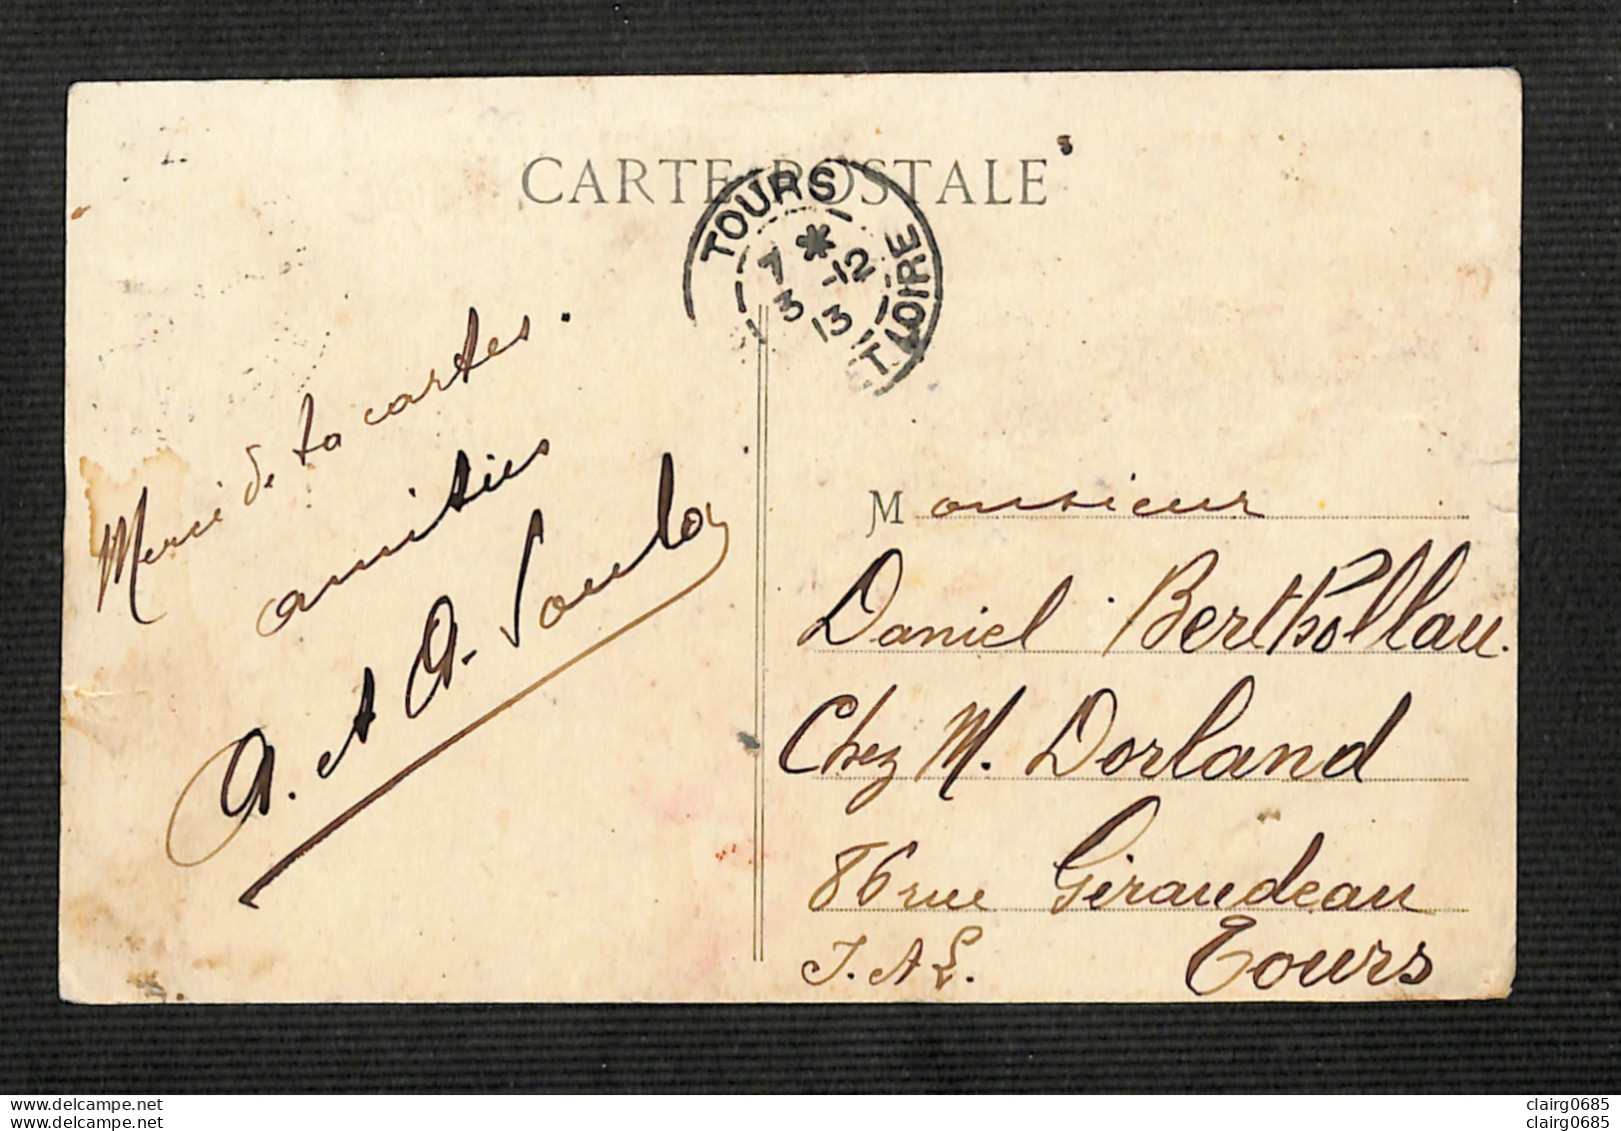 CARTE POSTALE
TOURS
7 *
3 -12
13
T-LOIRE
Merci de ta cartes.
amitiés
A. et A.
Monsieur
Daniel Berthollau.
Chez M. Dorland
86 rue Giraudeau
I. A L. Tours
www.delcampe.net
clairg0685
www.delcampe.net
clairg0685